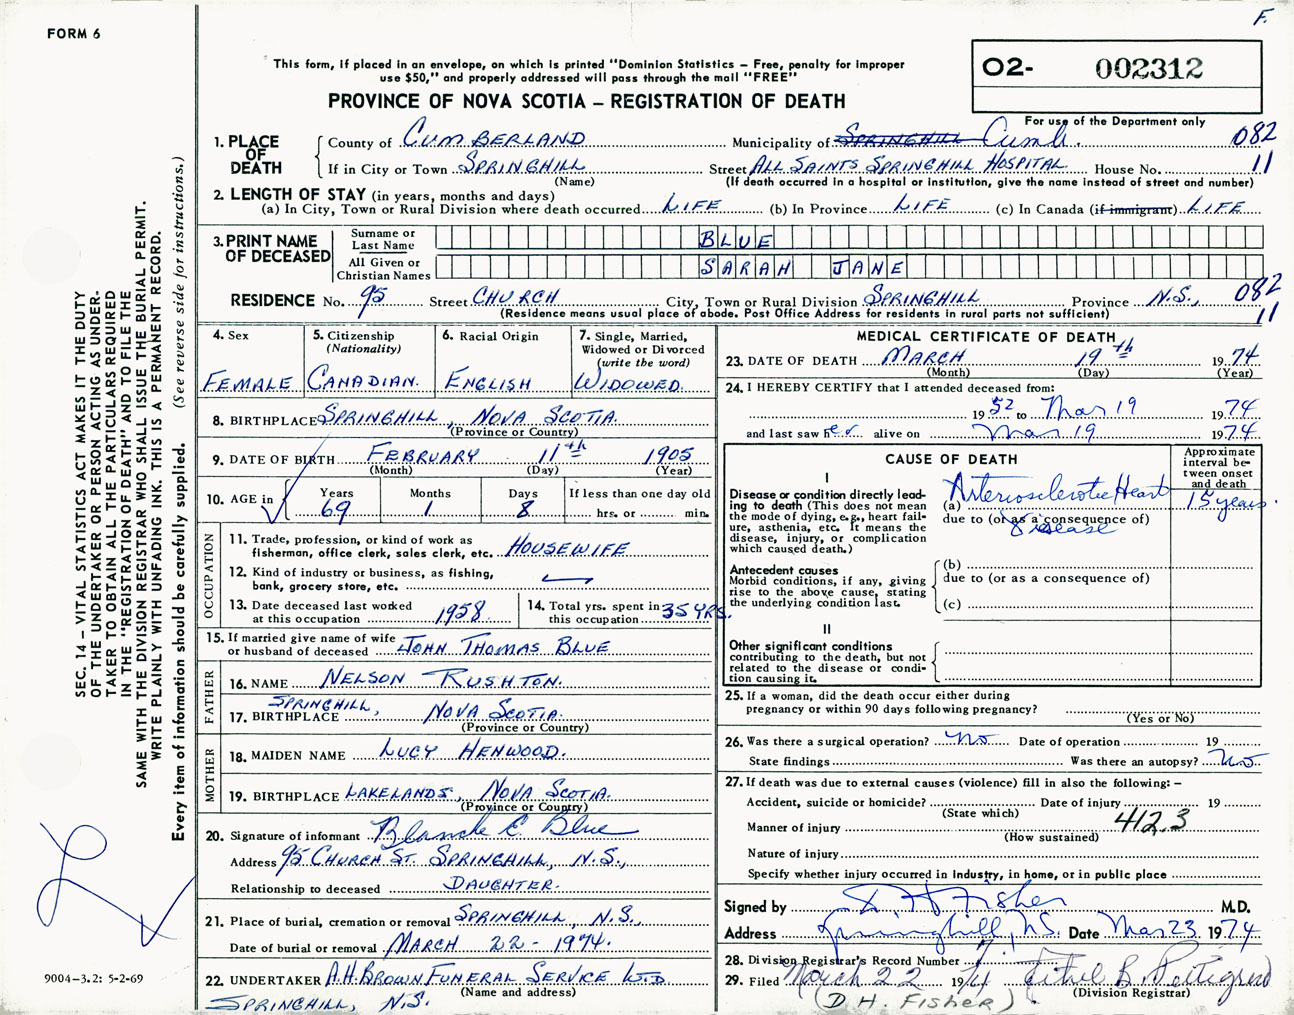 F.
FORM 6
This form, if placed in an envelope, on which is printed "Dominion Statistics – Free, penalty for improper
use $50," and properly addressed will pass through the mail "FREE"
PROVINCE OF NOVA SCOTIA – REGISTRATION OF DEATH
O2- 002312
For use of the Department only
SEC. 14 – VITAL STATISTICS ACT MAKES IT THE DUTY
OF THE UNDERTAKER OR PERSON ACTING AS UNDER-
TAKER TO OBTAIN ALL THE PARTICULARS REQUIRED
IN THE "REGISTRATION OF DEATH" AND TO FILE THE
SAME WITH THE DIVISION REGISTRAR WHO SHALL ISSUE THE BURIAL PERMIT.
WRITE PLAINLY WITH UNFADING INK. THIS IS A PERMANENT RECORD.
Every item of information should be carefully supplied. (See reverse side for instructions.)
1. PLACE OF DEATH County of CUMBERLAND Municipality of SPRINGHILL Cumb. 082
If in City or Town SPRINGHILL Street ALL SAINTS SPRINGHILL HOSPITAL House No. 11
(Name) (If death occurred in a hospital or institution, give the name instead of street and number)
2. LENGTH OF STAY (in years, months and days)
(a) In City, Town or Rural Division where death occurred LIFE (b) In Province LIFE (c) In Canada (if immigrant) LIFE
3. PRINT NAME OF DECEASED Surname or Last Name BLUE
All Given or Christian Names SARAH JANE
RESIDENCE No. 95 Street CHURCH City, Town or Rural Division SPRINGHILL Province N.S., 082
(Residence means usual place of abode. Post Office Address for residents in rural parts not sufficient) 11
4. Sex FEMALE
5. Citizenship (Nationality) CANADIAN.
6. Racial Origin ENGLISH
7. Single, Married, Widowed or Divorced (write the word) WIDOWED.
8. BIRTHPLACE SPRINGHILL, NOVA SCOTIA.
(Province or Country)
9. DATE OF BIRTH FEBRUARY 11th 1905
(Month) (Day) (Year)
10. AGE in Years Months Days If less than one day old
69 1 8 hrs. or min.
OCCUPATION
11. Trade, profession, or kind of work as
fisherman, office clerk, sales clerk, etc. HOUSEWIFE
12. Kind of industry or business, as fishing,
bank, grocery store, etc.
13. Date deceased last worked
at this occupation 1958
14. Total yrs. spent in
this occupation 35 YRS.
15. If married give name of wife
or husband of deceased JOHN THOMAS BLUE
FATHER
16. NAME NELSON RUSHTON.
17. BIRTHPLACE SPRINGHILL, NOVA SCOTIA.
(Province or Country)
MOTHER
18. MAIDEN NAME LUCY HENWOOD.
19. BIRTHPLACE LAKELANDS, NOVA SCOTIA.
(Province or Country)
20. Signature of informant Blanche E. Blue
Address 95 CHURCH ST. SPRINGHILL, N.S.,
Relationship to deceased DAUGHTER.
21. Place of burial, cremation or removal SPRINGHILL, N.S.,
Date of burial or removal MARCH 22 - 1974.
22. UNDERTAKER A.H. BROWN FUNERAL SERVICE LTD
(Name and address)
SPRINGHILL, N.S.
9004–3.2: 5-2-69
MEDICAL CERTIFICATE OF DEATH
23. DATE OF DEATH MARCH 19th 1974
(Month) (Day) (Year)
24. I HEREBY CERTIFY that I attended deceased from:
1952 to Mar 19 1974
and last saw her alive on Mar 19 1974
CAUSE OF DEATH
Approximate interval between onset and death
I
Disease or condition directly lead-
ing to death (This does not mean
the mode of dying, e.g., heart fail-
ure, asthenia, etc. It means the
disease, injury, or complication
which caused death.)
(a) Arteriosclerotic Heart 15 years.
due to (or as a consequence of)
Disease
Antecedent causes
Morbid conditions, if any, giving
rise to the above cause, stating
the underlying condition last.
(b)
due to (or as a consequence of)
(c)
II
Other significant conditions
contributing to the death, but not
related to the disease or condi-
tion causing it.
25. If a woman, did the death occur either during
pregnancy or within 90 days following pregnancy?
(Yes or No)
26. Was there a surgical operation? No Date of operation 19
State findings Was there an autopsy? No
27. If death was due to external causes (violence) fill in also the following: –
Accident, suicide or homicide? Date of injury 19
(State which)
Manner of injury 412.3
(How sustained)
Nature of injury
Specify whether injury occurred in industry, in home, or in public place
Signed by D H Fisher M.D.
Address Springhill, N.S. Date Mar 23 1974
28. Division Registrar's Record Number 7.
29. Filed March 22 1974 Ethel B. Pettigrew
(Division Registrar)
(D. H. FISHER).